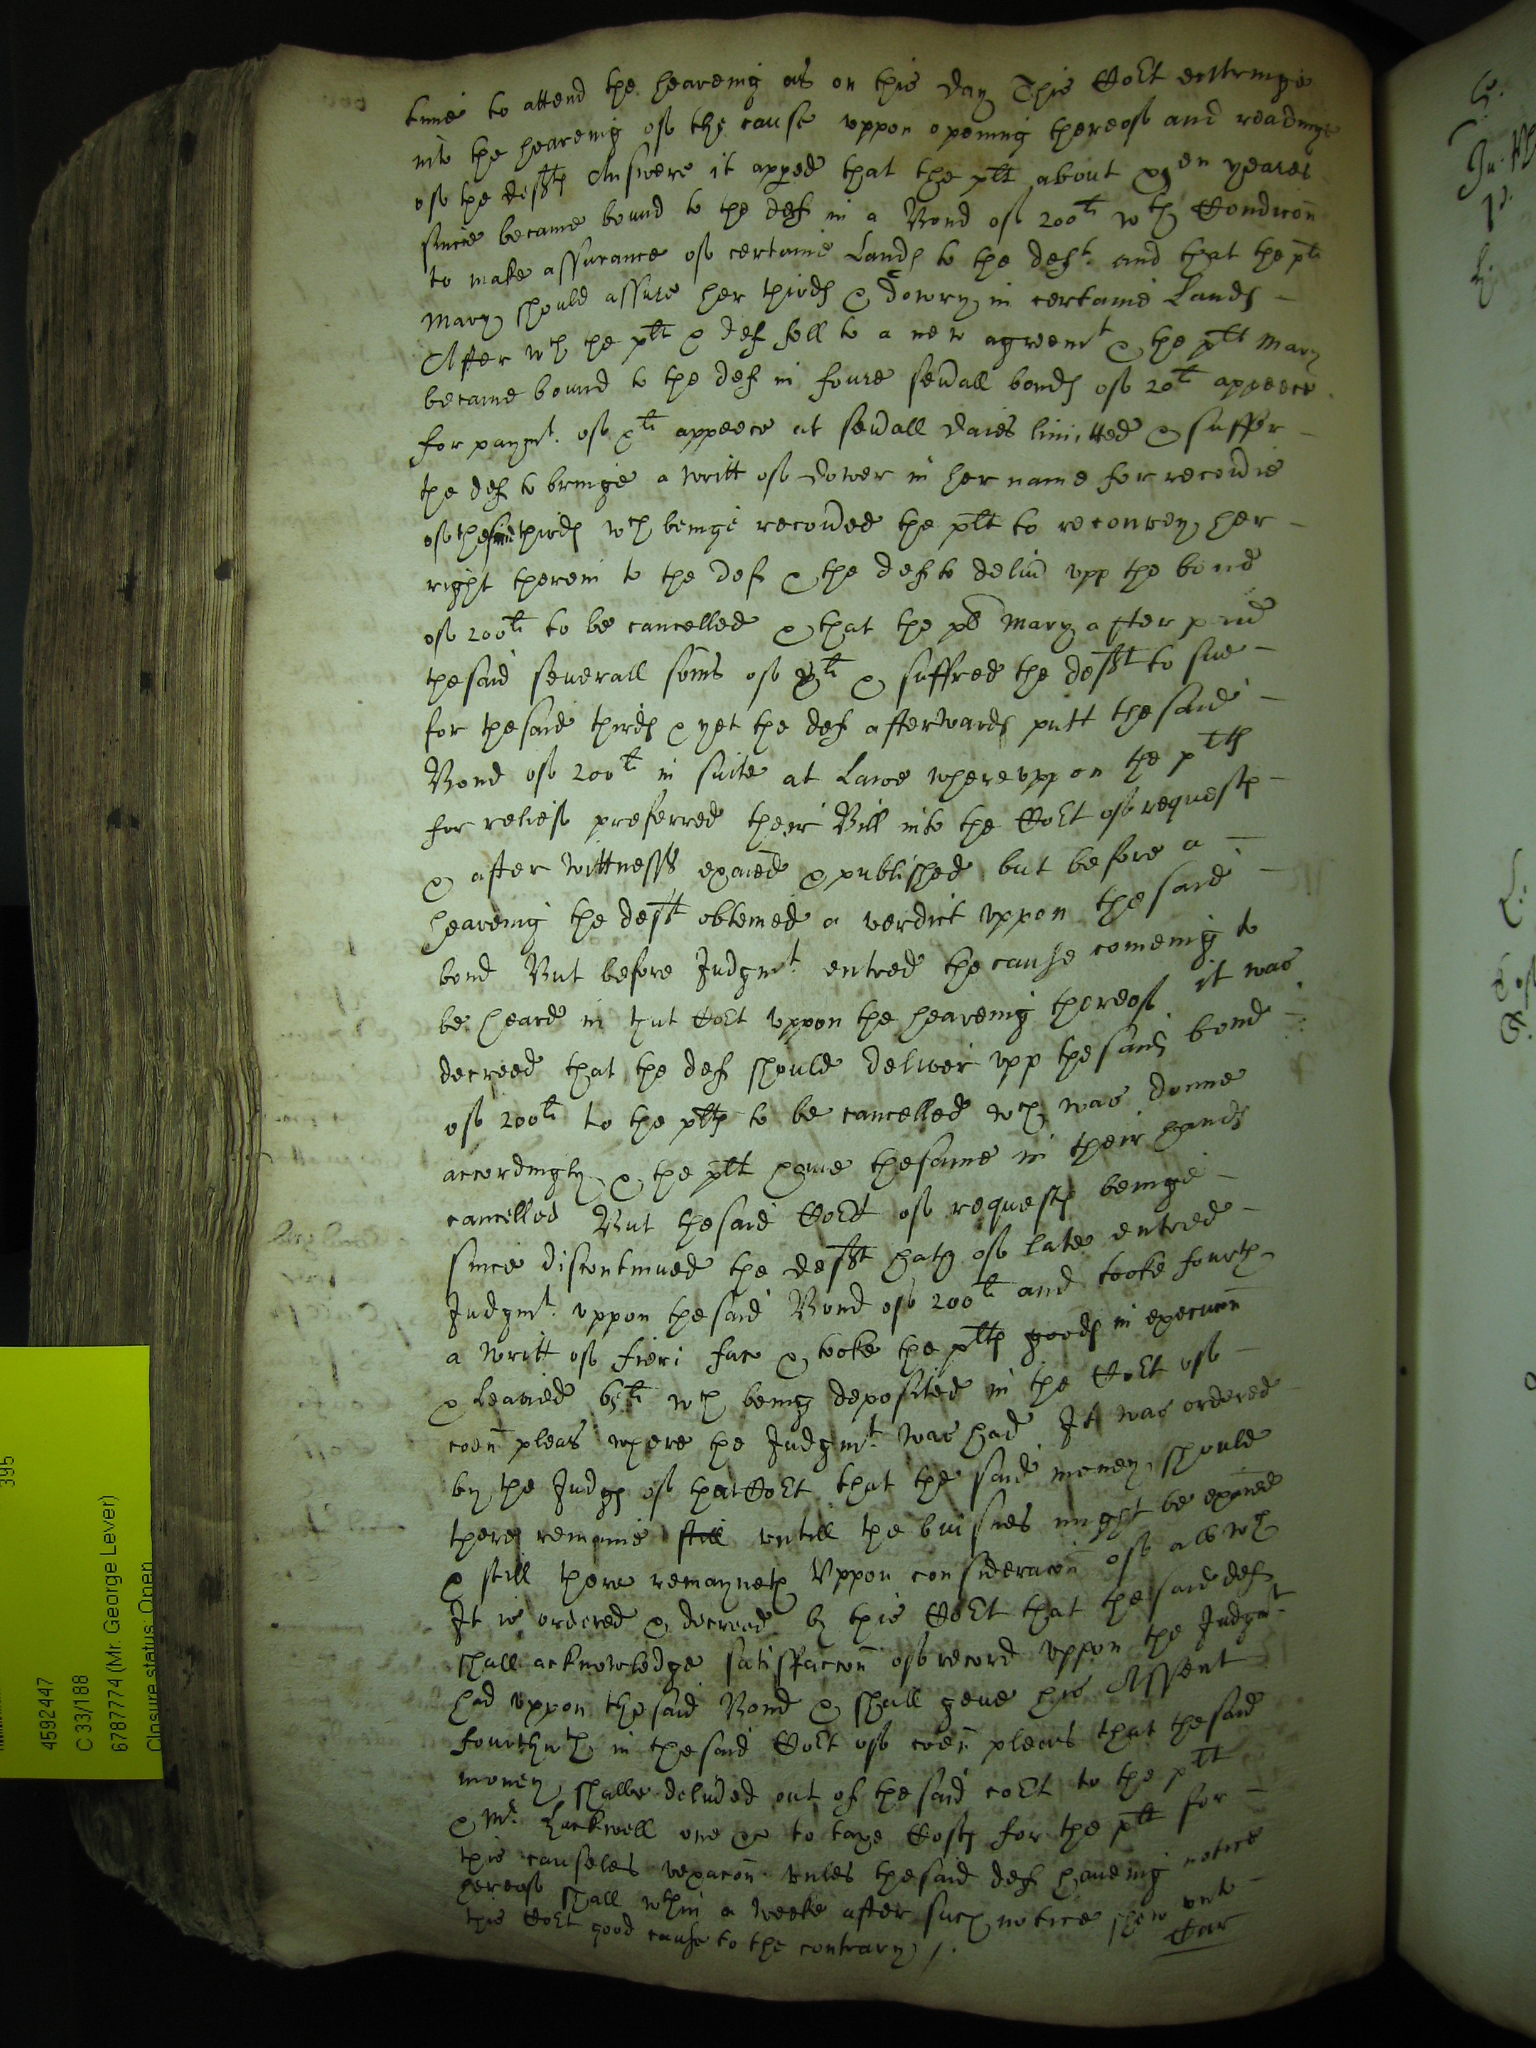 tyme to attend the heareing as on this day This Co:rt entringe
into the heareing of the cause vppon opening thereof and readinge
of the defts Answere it appeed that the plt about xen yeares
since became bound to the def in a Bond of 200li wth Condicon
to make assurance of certaine Lands to the deft. and that the plt
Mary should assure her thirds & dowry in certaine Lands
After wch the plt & def fell to a new agreemt & the plt Mary
became bound to the def in foure seuall bonds of 20li appeece
for paymt. of xli appeece at seuall daies limitted & suffer
the def to bringe a writt of dower in her name for recouie
of the same thirds wch beinge recoued the plt to reconvey her
right therein to the def & the def to deliu upp the bond
of 200li to be cancelled & that the plt Mary after paid
the said seuerall soms of xli & suffred the deft to sue
for the said thirds & yet the def afterwards putt the said
Bond of 200li in suite at Lawe wherevppon the plts
for relief preferred their Bill into the Cort of requests
& after wittnesses exaied & published but before a
heareing the deft obteined a verdict vppon the said
bond But before Judgmt. entred the cause comeing to
be heard in that Cort vppon the heareing thereof it was
decreed that the def should deliver vpp the said bond
of 200li to the plts to be cancelled wch was donne
accordingly & the plt haue the same in their hands
cancelled But the said Cort of requests beinge
since discontinued the deft hath of late entred
Judgmt. vppon the said Bond of 200li and tooke fourth
a writt of fieri fac & tooke the plts goods in execucon
& leavied li wch being deposited in the Cort of
coen pleas where the Judgmt. was had It was ordered
by the Judges of that Cort that the said money should
there remaine still vntill the buisnes might be exaied
& still there remayneth Vppon consideracon of all wch
It is ordered & decreed by this Cort that the said def
shall acknowledge satisfaccon of record vppon the Judgmt.
had vppon the said Bond & shall geue his Assent
fourthwth in the said Cort of coen pleas that the said
money shalbe deliued out of the said cort to the plt
& Mr. one &c to taxe Costs for the plt for
this causeles vexacon vnles the said def haueing notice
hereof shall wthin a weeke after such notice shew vnto
this Cort good cause to the contrary /.
4592447
C 33/188
6787774 (Mr. George Lever)
Closure status: Open
395